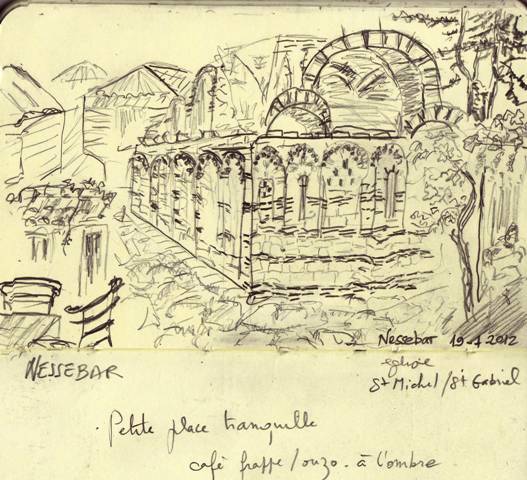 Nessebar 19-7 2012
NESSEBAR
eglise
St Michel/St Gabriel
Petite place tranquille
café frappe/ouzo. à l'ombre